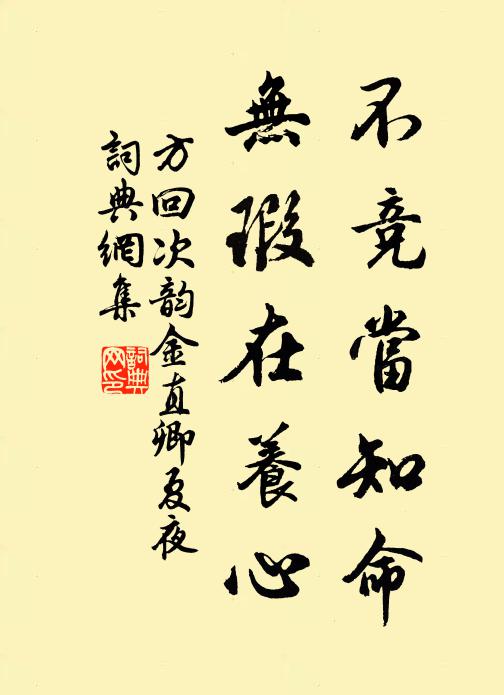 不竞當知命
無瑕在養心
方回次韵金直卿夏夜
詞典網集
詞典網印